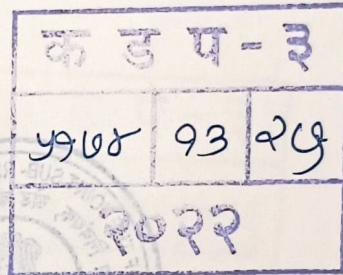 क ड प - ३
५१७४ १३ २५
२०२२